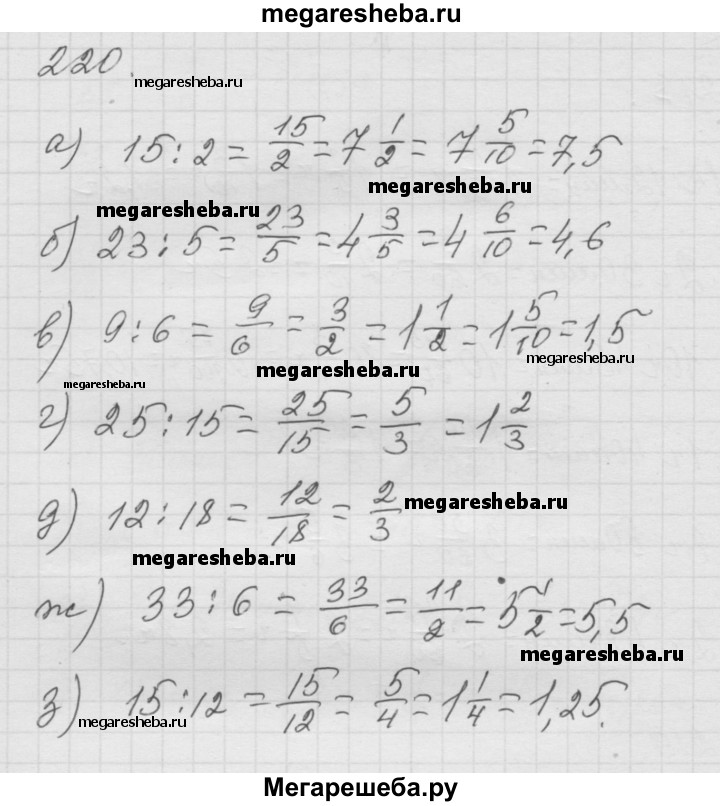 megaresheba.ru
220.
megaresheba.ru
а) 15 : 2 = 15/2 = 7 1/2 = 7 5/10 = 7,5
megaresheba.ru
megaresheba.ru
б) 23 : 5 = 23/5 = 4 3/5 = 4 6/10 = 4,6
в) 9 : 6 = 9/6 = 3/2 = 1 1/2 = 1 5/10 = 1,5
megaresheba.ru
megaresheba.ru
megaresheba.ru
г) 25 : 15 = 25/15 = 5/3 = 1 2/3
д) 12 : 18 = 12/18 = 2/3
megaresheba.ru
megaresheba.ru
ж) 33 : 6 = 33/6 = 11/2 = 5 1/2 = 5,5
megaresheba.ru
з) 15 : 12 = 15/12 = 5/4 = 1 1/4 = 1,25.
megaresheba.ru
Мегарешеба.ру